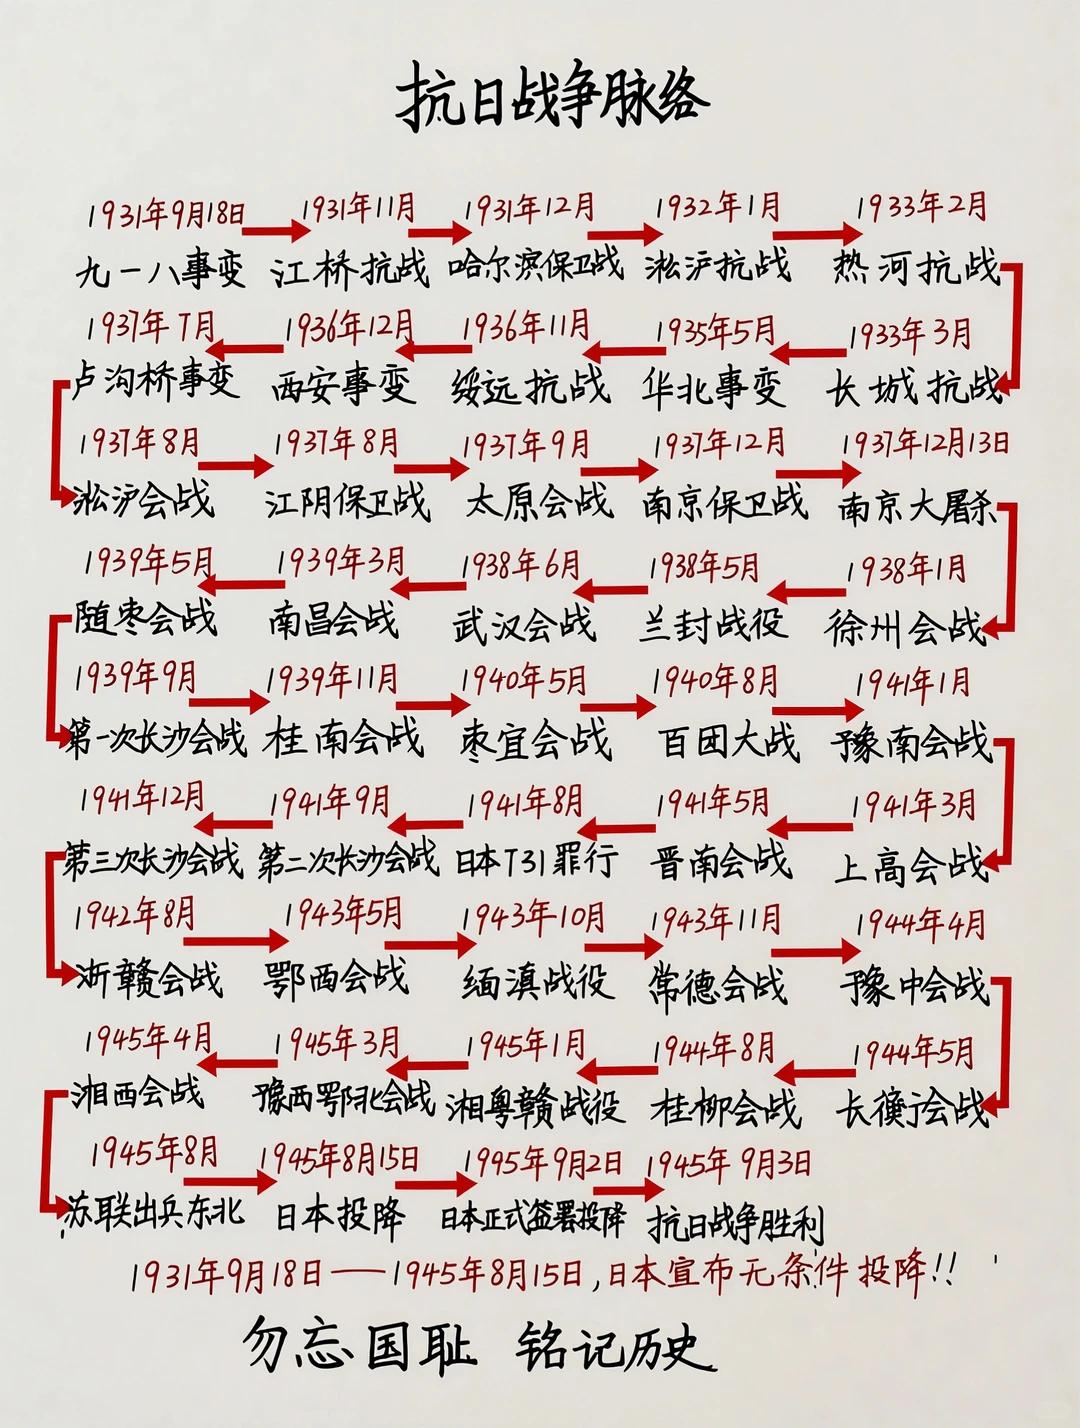 抗日战争脉络
1931年9月18日 1931年11月 1931年12月 1932年1月 1933年2月
九一八事变 江桥抗战 哈尔滨保卫战 淞沪抗战 热河抗战
1937年7月 1936年12月 1936年11月 1935年5月 1933年3月
卢沟桥事变 西安事变 绥远抗战 华北事变 长城抗战
1937年8月 1937年8月 1937年9月 1937年12月 1937年12月13日
淞沪会战 江阴保卫战 太原会战 南京保卫战 南京大屠杀
1939年5月 1939年3月 1938年6月 1938年5月 1938年1月
随枣会战 南昌会战 武汉会战 兰封战役 徐州会战
1939年9月 1939年11月 1940年5月 1940年8月 1941年1月
第一次长沙会战 桂南会战 枣宜会战 百团大战 豫南会战
1941年12月 1941年9月 1941年8月 1941年5月 1941年3月
第三次长沙会战 第二次长沙会战 日本731罪行 晋南会战 上高会战
1942年8月 1943年5月 1943年10月 1943年11月 1944年4月
浙赣会战 鄂西会战 缅滇战役 常德会战 豫中会战
1945年4月 1945年3月 1945年1月 1944年8月 1944年5月
湘西会战 豫西鄂北会战 湘粤赣战役 桂柳会战 长衡会战
1945年8月 1945年8月15日 1945年9月2日 1945年9月3日
苏联出兵东北 日本投降 日本正式签署投降 抗日战争胜利
1931年9月18日——1945年8月15日,日本宣布无条件投降!!
勿忘国耻 铭记历史